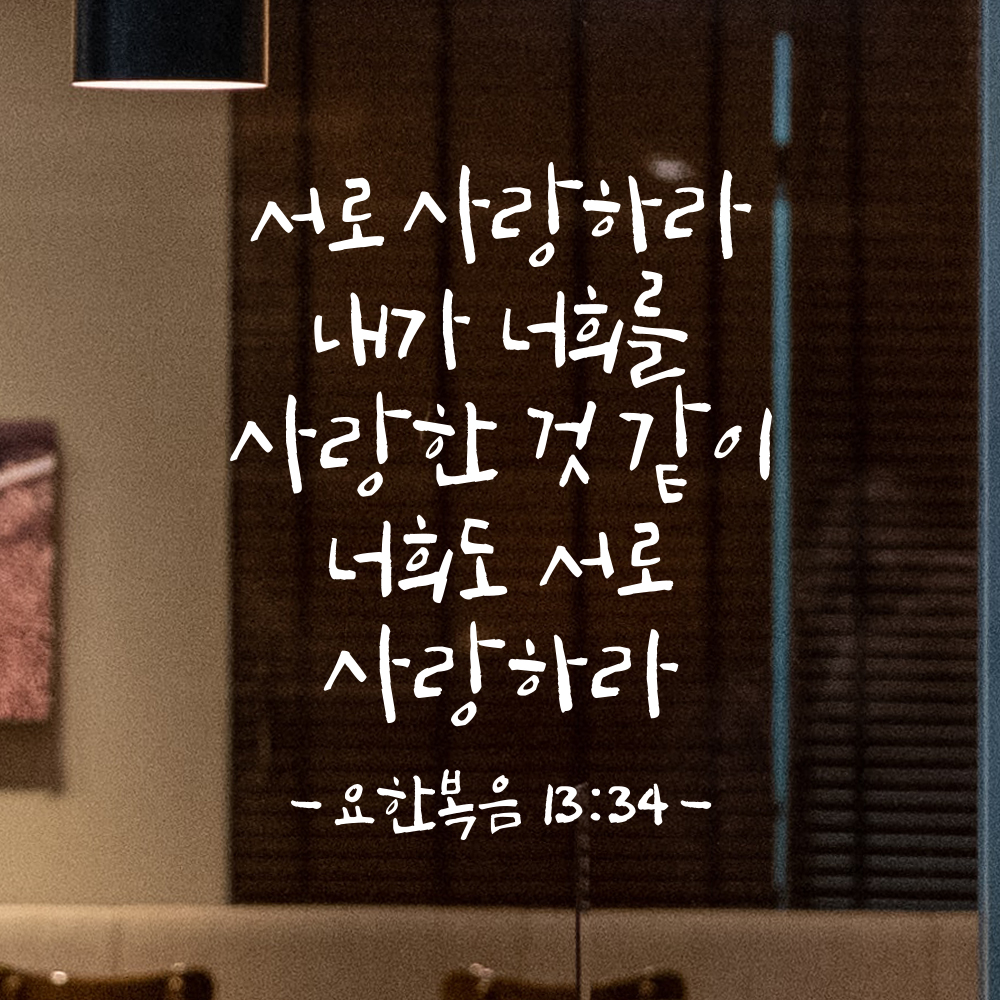 서로 사랑하라
내가 너희를
사랑한 것 같이
너희도 서로
사랑하라
- 요한복음 13:34 -